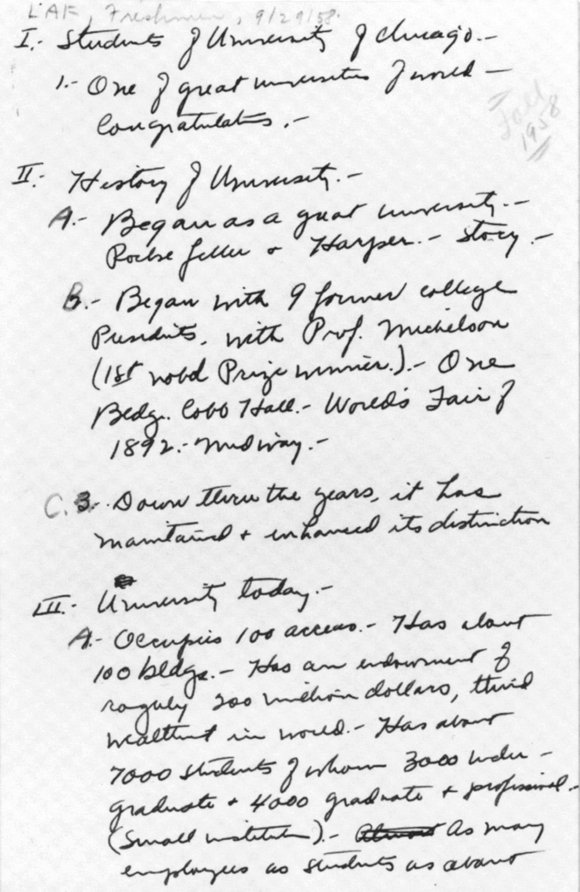 LAK, Freshmen, 9/29/58.
I.- Students of University of Chicago.-
1.- One of great universities of world -
Congratulations.-
Fall
1958
II.- History of University.-
A.- Began as a great university.-
Rockefeller + Harper.- Story.-
B.- Began with 9 former college
Presidents, with Prof. Michelson
(1st nobel Prize winner.).- One
Bldg. Cobb Hall.- World's Fair of
1892.- Midway.-
C. 3.- Down thru the years, it has
maintained + enhanced its distinction
III.- University today.-
A.- Occupies 100 accres.- Has about
100 bldgs.- Has an endowment of
roguhly 200 million dollars, third
wealthiest in world.- Has about
7000 students of whom 3000 under-
graduate + 4000 graduate + professional-
(Small institution).- Almost As many
employees as students as about